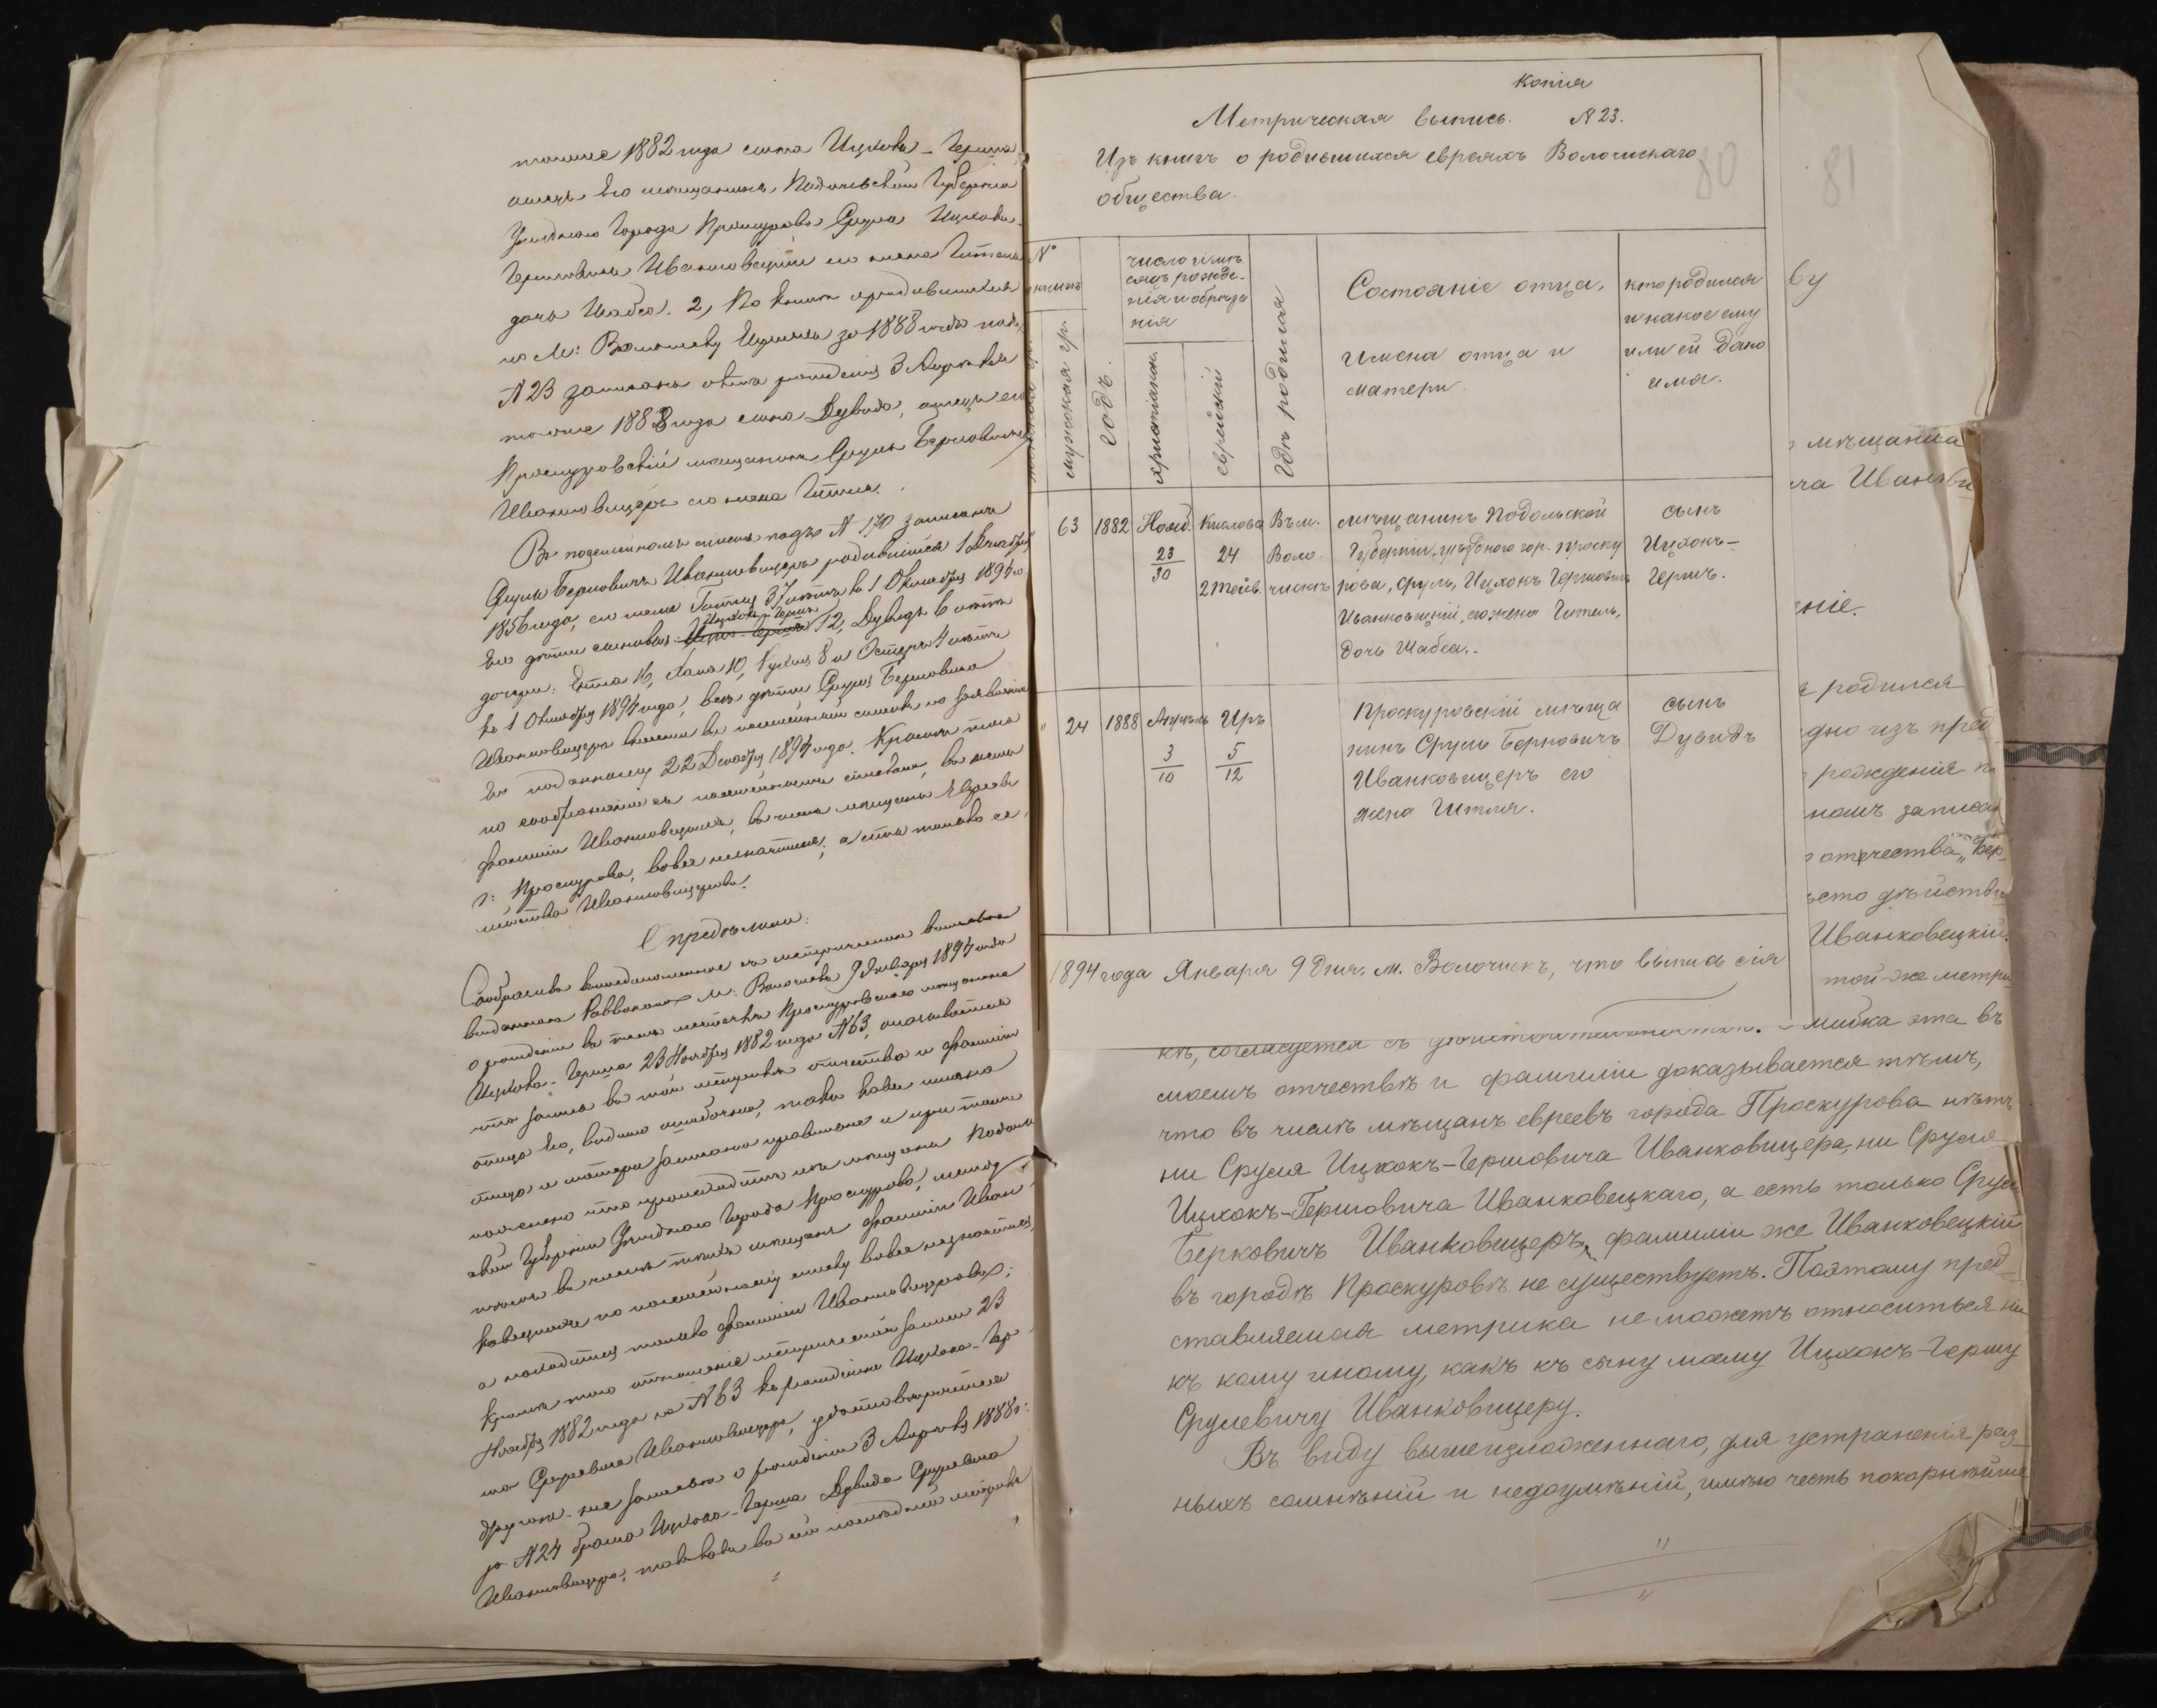 1882 года сына Ицхокъ-Герша,
отецъ его мѣщанинъ Подольской Губерніи
Уѣзднаго Города Проскурова Сруль Ицхокъ-
Гершовичъ Иванковецкій его жена Гитель
дочь Шабса. 2, По книгѣ о родившихся
по М: Волочиску Евреяхъ за 1888 годъ подъ
№ 23 записанъ актъ рожденія 3 Августа
1888 года сына Дувида, отецъ его
Проскуровскій мѣщанинъ Сруль Берковичъ
Иванковицеръ его жена Гитля.
Въ посемейномъ спискѣ подъ № 170 записанъ
Сруль Берковичъ Иванковицеръ родившійся 1 Декабря
1856 года, его жена Гитля 37 лѣтъ къ 1 Октября 1894 г.
Ицхокъ-Гершъ
Его дѣти сыновья: 12, Дувидъ 6 лѣтъ
дочери: Ентла 16, Хана 10, 8 и Эстеръ 4 лѣтъ
къ 1 Октября 1894 года, всѣ дѣти Сруля Берковича
Иванковицера внесены въ посемейный списокъ по заявленію
его поданному 22 Декабря 1894 года. Кромѣ того
по соображенію съ посемейными списками, въ коихъ
фамиліи Иванковецкихъ, въ числѣ мѣщанъ Евреевъ
г: Проскурова, вовсе незначится, а есть только се-
мейства Иванковицеровъ.
Опредѣлили:
Сообразивъ вышеизложенное съ метрическою выписью
выданною Раввиномъ М: Волочиска 9 Января 1894 года
о рожденіи въ томъ мѣстечкѣ Проскуровскаго мѣщанина
Ицхокъ-Герша 23 Ноября 1882 года № 63, оказывается
что запись въ той метрикѣ отчества и фамиліи
отца его, видимо ошибочна, такъ какъ имена
отца и матери записаны правильно и при томъ
пояснено что происходитъ изъ мѣщанъ Подоль-
ской Губерніи Уѣзднаго Города Проскурова, между
тѣмъ въ числѣ такихъ мѣщанъ фамиліи Иван-
ковецкихъ по посемейному списку вовсе незначится,
а находится только фамилія Иванковицеровъ;
Кромѣ того отношеніе метрической записи 23
Ноября 1882 года за № 63 къ рожденію Ицхокъ-Гер-
ша Срулевича Иванковицера, удостовѣряется
другою-же записью о рожденіи 3 Августа 1888 г:
за № 24 брата Ицхокъ-Герша Дувида Срулевича
Иванковицера, такъ какъ въ сей послѣдней метрикѣ
копія
Метрическая выпись. №23.
Изъ книгъ о родившихся евреяхъ Волочискаго
общества.
80
81
№
мужская гр.
годъ.
число и мѣ-
сяцъ рожде-
нія и обрѣза
нія
христіанск.
еврейскій
Гдѣ родился
Состояніе отца,
Имена отца и
матери.
кто родился
и какое ему
или ей дано
имя.
63 1882 Нояб. 23/30 Кислова 24 2 Тейв. Въ м. Воло-чискѣ
мѣщанинъ Подольской
Губерніи, уѣзднаго гор. Проску
рова, Сруль, Ицхокъ Гершовичъ
Иванковецкій, его жена Гитель,
дочь Шабса..
сынъ
Ицхокъ-
Гершъ.
" 24 1888 Августъ 3/10 Иръ 5/12
Проскуровскій мѣща
нинъ Сруль Берковичъ
Иванковицеръ его
жена Гитля.
сынъ
Дувидъ
1894 года Января 9 дня. м. Волочискъ, что выпись сія
ву
мѣщанина
ча Иванкови
ніе.
родился
дно изъ пред
рожденія
намъ записан
отчества "Бер-
ѣсто дѣйстви
Иванковецкій.
той-же метри
кѣ, согласуется съ дѣйствительностью. -мибка эта въ
моемъ отчествѣ и фамиліи доказывается тѣмъ,
что въ числѣ мѣщанъ евреевъ города Проскурова нѣтъ
ни Сруля Ицхокъ-Гершовича Иванковицера, ни Сруля
Ицхокъ-Гершовича Иванковецкаго, а есть только Сруль
Берковичъ Иванковицеръ, фамиліи же Иванковецкій
въ городѣ Проскуровѣ не существуетъ. Поэтому пред-
ставляемая метрика не можетъ относиться ни
къ кому иному, какъ къ сыну моему Ицхокъ-Гершу
Срулевичу Иванковицеру.
Въ виду вышеизложеннаго, для устраненія раз-
ныхъ сомнѣній и недоумѣній, имѣю честь покорнѣйше